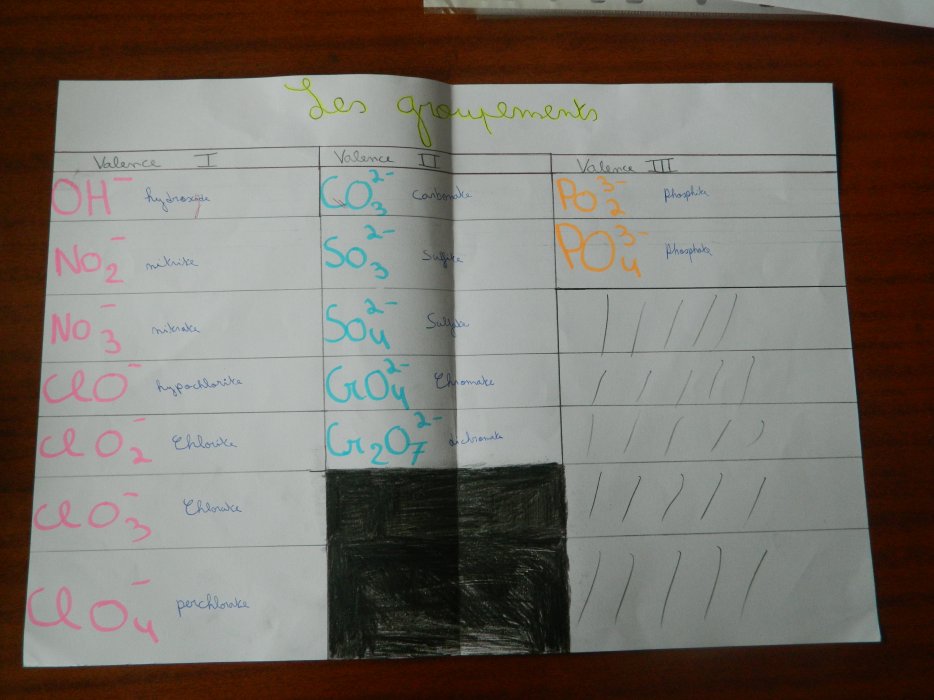 Les groupements
Valence I Valence II Valence III
OH⁻ hydroxyde CO₃²⁻ Carbonate PO₂³⁻ phosphite
NO₂⁻ nitrite SO₃²⁻ Sulfite PO₄³⁻ phosphate
NO₃⁻ nitrate SO₄²⁻ Sulfate
ClO⁻ hypochlorite CrO₄²⁻ Chromate
ClO₂⁻ Chlorite Cr₂O₇²⁻ dichromate
ClO₃⁻ Chlorate
ClO₄⁻ perchlorate